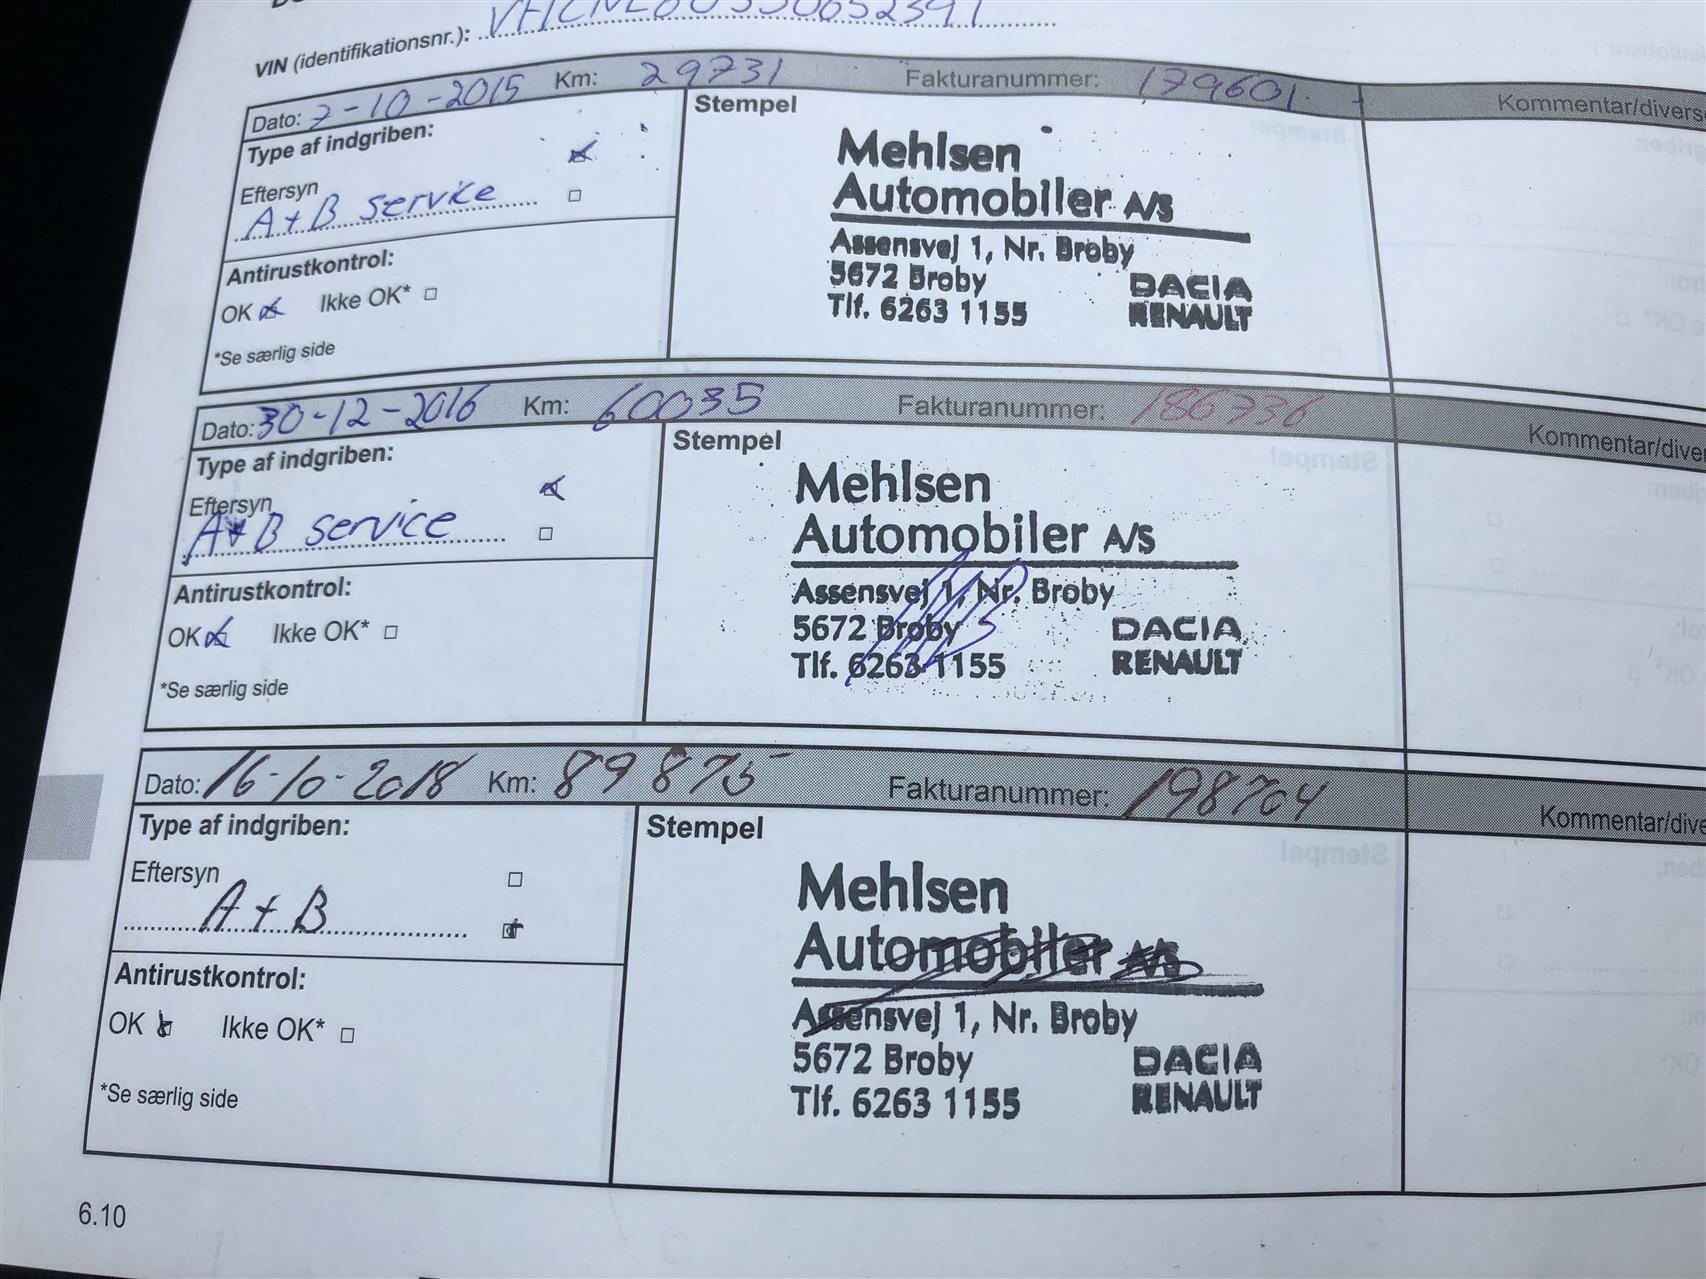 VIN (identifikationsnr.):
Dato: 7-10-2015 Km: 29731 Fakturanummer: 179601 Kommentar/diverse
Type af indgriben:
Stempel
Eftersyn
A+B service
Mehlsen
Automobiler A/S
Assensvej 1, Nr. Broby
5672 Broby
Tlf. 6263 1155
DACIA
RENAULT
Antirustkontrol:
OK Ikke OK*
*Se særlig side
Dato: 30-12-2016 Km: 60035 Fakturanummer: 186736 Kommentar/diver
Type af indgriben:
Stempel
Eftersyn
A+B service
Mehlsen
Automobiler A/S
Assensvej 1, Nr. Broby
5672 Broby
Tlf. 6263 1155
DACIA
RENAULT
Antirustkontrol:
OK Ikke OK*
*Se særlig side
Dato: 16-10-2018 Km: 89875 Fakturanummer: 198704 Kommentar/dive
Type af indgriben:
Stempel
Eftersyn
A+B
Mehlsen
Automobiler A/S
Assensvej 1, Nr. Broby
5672 Broby
Tlf. 6263 1155
DACIA
RENAULT
Antirustkontrol:
OK Ikke OK*
*Se særlig side
6.10